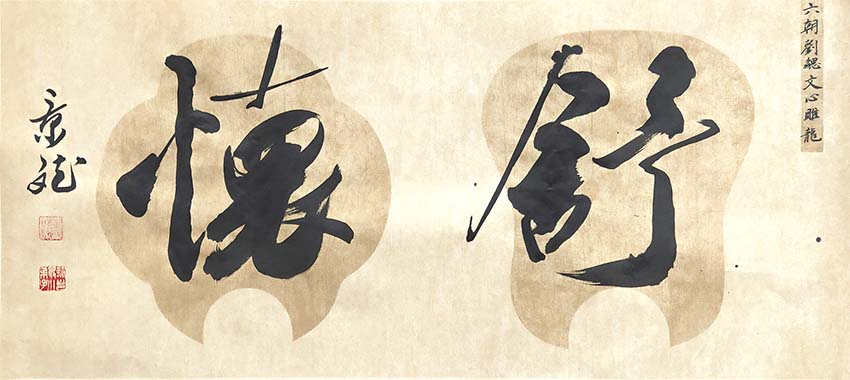 六朝劉勰文心雕龍
舒懷